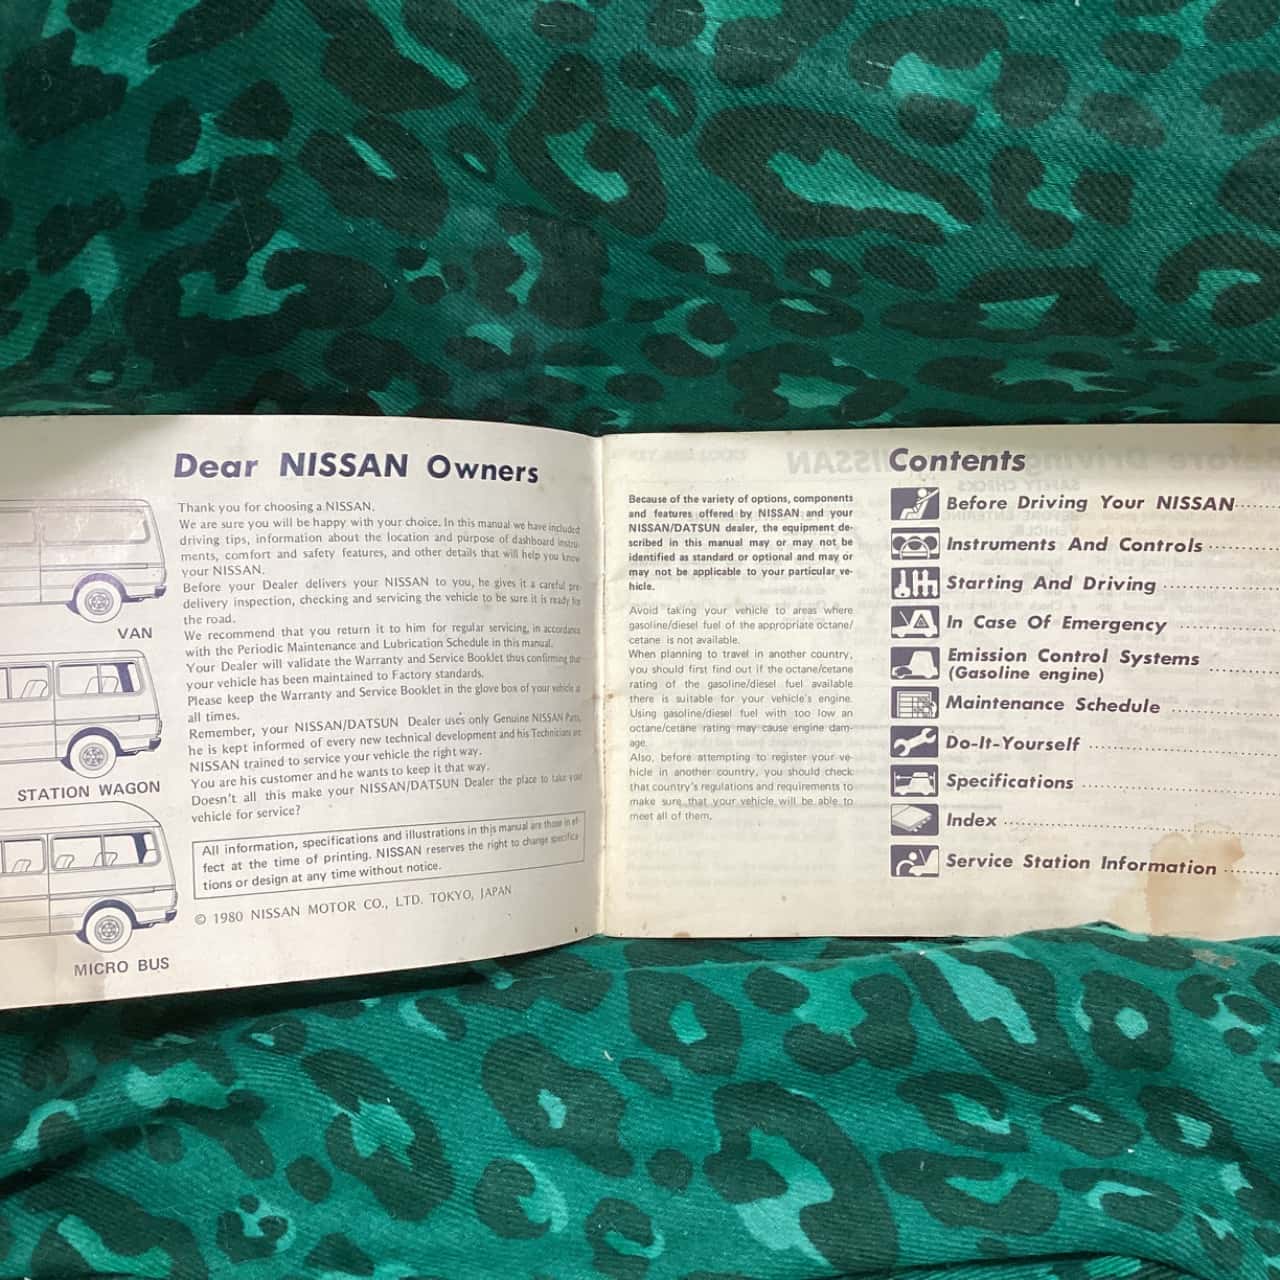 VAN
STATION WAGON
MICRO BUS
Dear NISSAN Owners
Thank you for choosing a NISSAN.
We are sure you will be happy with your choice. In this manual we have included
driving tips, information about the location and purpose of dashboard instru-
ments, comfort and safety features, and other details that will help you know
your NISSAN.
Before your Dealer delivers your NISSAN to you, he gives it a careful pre-
delivery inspection, checking and servicing the vehicle to be sure it is ready for
the road.
We recommend that you return it to him for regular servicing, in accordance
with the Periodic Maintenance and Lubrication Schedule in this manual.
Your Dealer will validate the Warranty and Service Booklet thus confirming that
your vehicle has been maintained to Factory standards.
Please keep the Warranty and Service Booklet in the glove box of your vehicle at
all times.
Remember, your NISSAN/DATSUN Dealer uses only Genuine NISSAN Parts,
he is kept informed of every new technical development and his Technicians are
NISSAN trained to service your vehicle the right way.
You are his customer and he wants to keep it that way.
Doesn't all this make your NISSAN/DATSUN Dealer the place to take your
vehicle for service?
All information, specifications and illustrations in this manual are those in ef-
fect at the time of printing. NISSAN reserves the right to change specifica-
tions or design at any time without notice.
© 1980 NISSAN MOTOR CO., LTD. TOKYO, JAPAN
Because of the variety of options, components
and features offered by NISSAN and your
NISSAN/DATSUN dealer, the equipment de-
scribed in this manual may or may not be
identified as standard or optional and may or
may not be applicable to your particular ve-
hicle.
Avoid taking your vehicle to areas where
gasoline/diesel fuel of the appropriate octane/
cetane is not available.
When planning to travel in another country,
you should first find out if the octane/cetane
rating of the gasoline/diesel fuel available
there is suitable for your vehicle's engine.
Using gasoline/diesel fuel with too low an
octane/cetane rating may cause engine dam-
age.
Also, before attempting to register your ve-
hicle in another country, you should check
that country's regulations and requirements to
make sure that your vehicle will be able to
meet all of them.
Contents
Before Driving Your NISSAN
Instruments And Controls
Starting And Driving
In Case Of Emergency
Emission Control Systems
(Gasoline engine)
Maintenance Schedule
Do-It-Yourself
Specifications
Index
Service Station Information